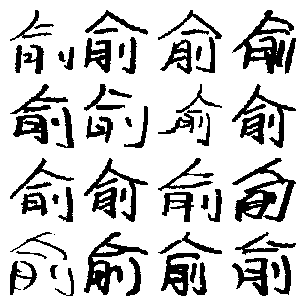 俞俞俞俞
俞俞俞俞
俞俞俞俞
俞俞俞俞